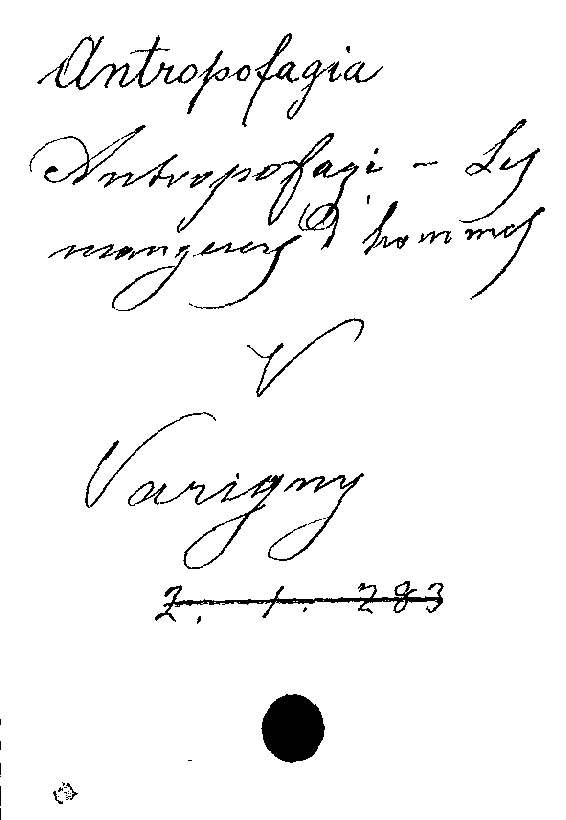 Antropofagia
Antropofagi - Les
mangeurs d'hommes
V
Varigny
2. 1. 283